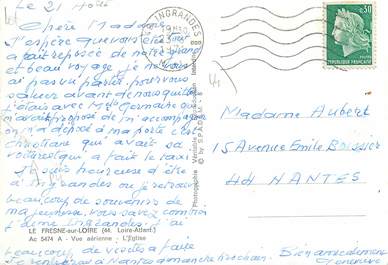 Le 21 Août
Chère Madame
J'espère que vous êtes tout
à fait reposée de notre grand
et beau voyage, je
n'ai pas vu
saluer avant de nous quitter
j'étais avec Mlle Germaine qui
m'avait proposé de m'accompagner
on m'a déposé à ma porte c'est
Christiane qui avait sa
voiture qui a fait le taxi
Je suis heureuse d'être
à Ingrandes où je retrouve
beaucoup de souvenirs de
ma jeunesse, vous savez combien
j'aime Ingrandes. J'ai
beaucoup de visites à faire
Je rentrerai à Nantes dimanche prochain. Bien amicalement
INGRANDES
0,30
REPUBLIQUE FRANÇAISE
Madame Aubert
15 Avenue Emile Boissier
44 NANTES
LE FRESNE-sur-LOIRE (44. Loire-Atlant.)
Ac 5474 A - Vue aérienne - L'Eglise
Photographie Véritable
© by S.P.A.D.E.M.